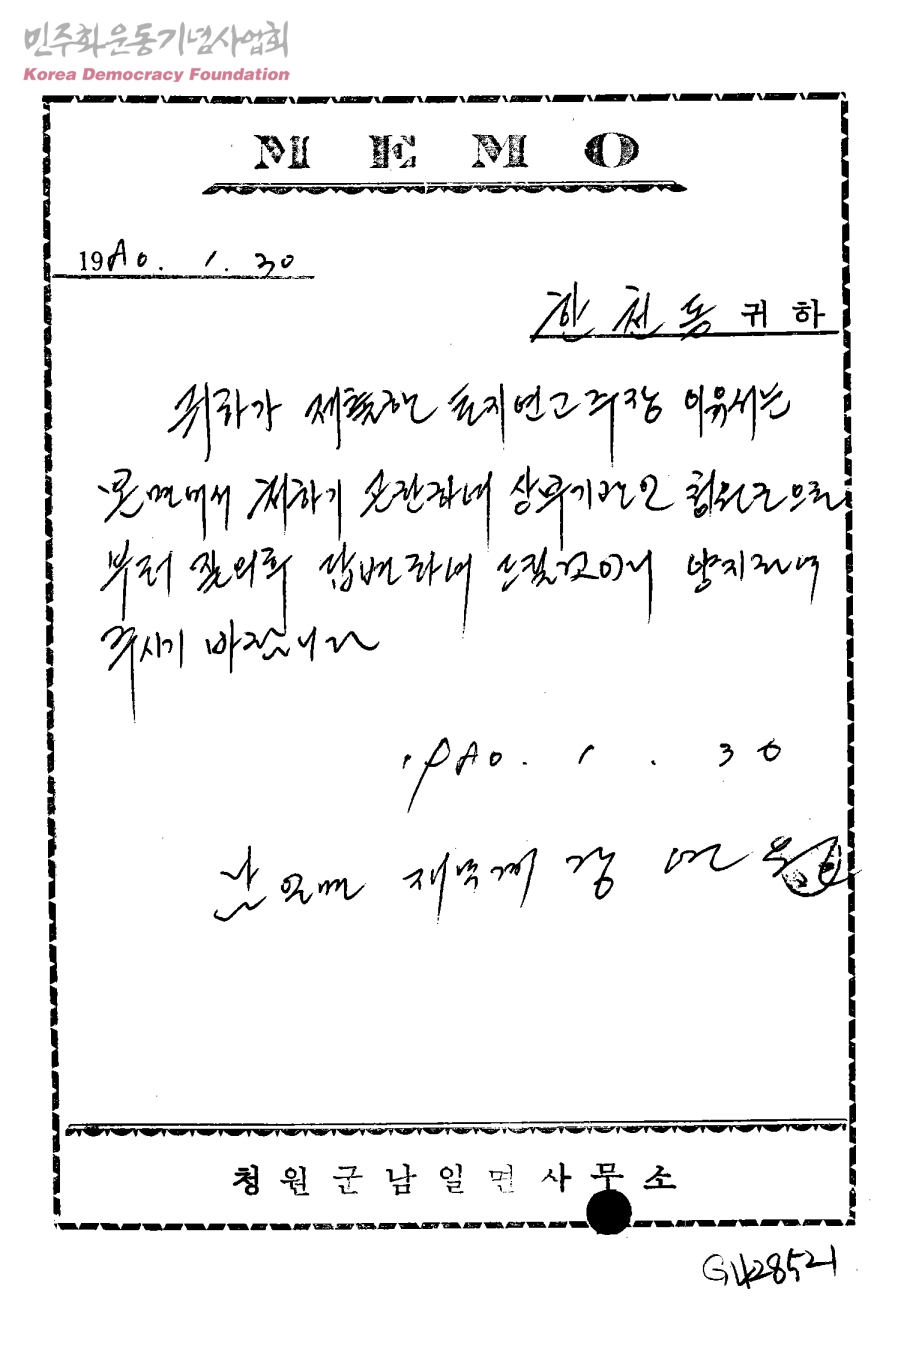 민주화운동기념사업회
Korea Democracy Foundation
MEMO
1980. 1. 30
한천동 귀하
귀하가 제출한 토지연고주장 이유서는
본면에서 처리하기 곤란하여 상부기관인 청원군으로
부터 질의회 답변하여 드릴것이니 양지하여
주시기 바랍니다
1980. 1. 30
남일면 재무계장
청원군남일면사무소